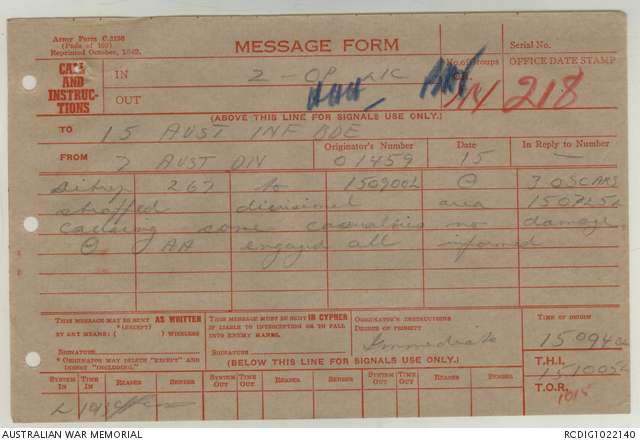 Army Form C.2136
(Pads of 100)
Reprinted October, 1942.
MESSAGE FORM
Serial No.
CALL AND INSTRUCTIONS
IN
2 - OP
No. of Groups
GR.
OFFICE DATE STAMP
OUT
44
218
(ABOVE THIS LINE FOR SIGNALS USE ONLY.)
TO 15 AUST INF BDE
FROM 7 AUST DIV
Originator's Number
01459
Date
15
In Reply to Number
—
Sitrep 267 to 150900L 3 OSCARS
strafed divisional area 150725L
causing some casualties no damage
AA engaged all informed
THIS MESSAGE MAY BE SENT AS WRITTEN
* (EXCEPT)
BY ANY MEANS ( ) WIRELESS
SIGNATURE
* ORIGINATOR MAY DELETE "EXCEPT" AND
INSERT "INCLUDING."
THIS MESSAGE MUST BE SENT IN CYPHER
IF LIABLE TO INTERCEPTION OR TO FALL
INTO ENEMY HANDS.
SIGNATURE
ORIGINATOR'S INSTRUCTIONS
DEGREE OF PRIORITY
Immediate
TIME OF ORIGIN
150940L
T.H.I.
151005L
T.O.R.
1015
(BELOW THIS LINE FOR SIGNALS USE ONLY.)
SYSTEM IN
TIME IN
READER
SENDER
SYSTEM OUT
TIME OUT
READER
SENDER
SYSTEM OUT
TIME OUT
READER
SENDER
AUSTRALIAN WAR MEMORIAL
RCDIG1022140